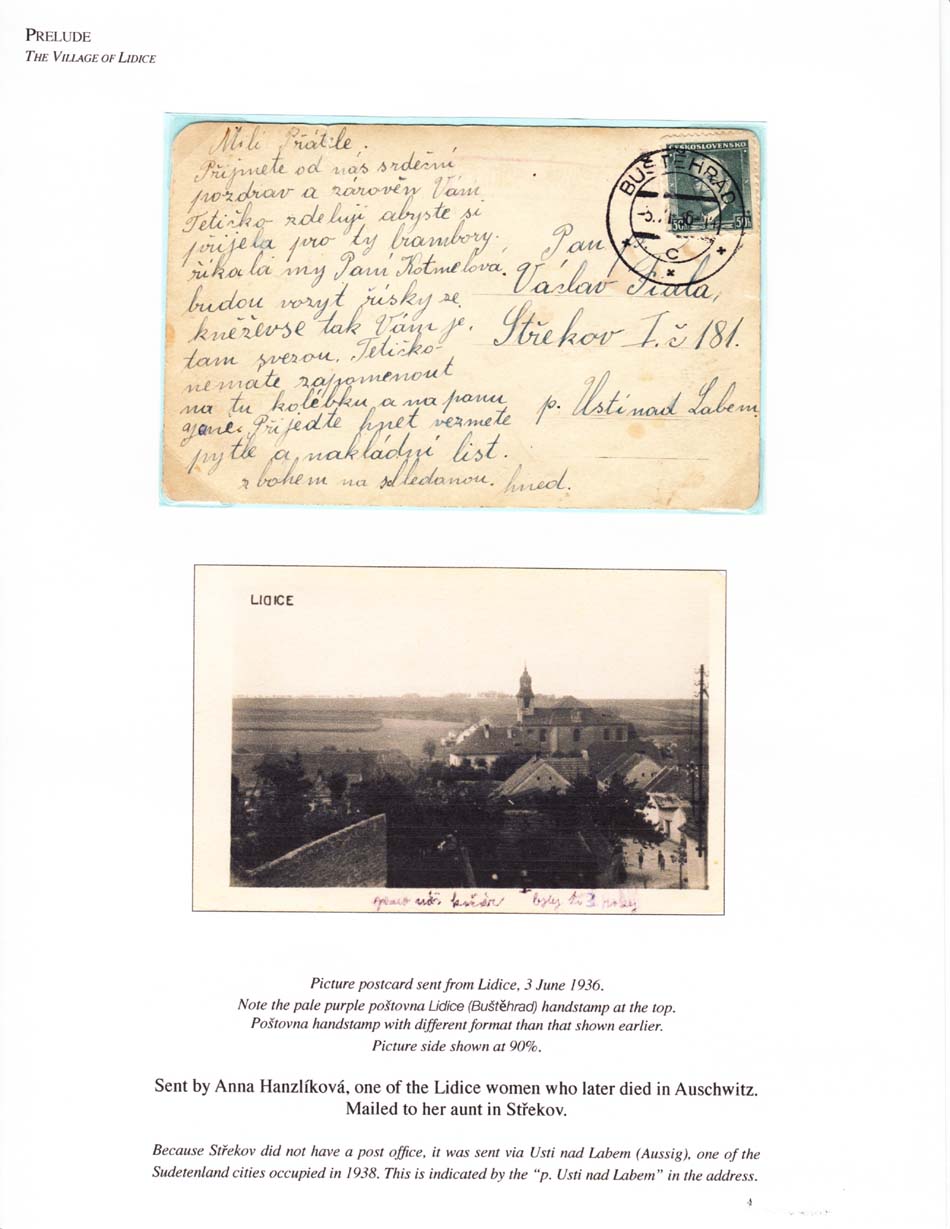 PRELUDE
THE VILLAGE OF LIDICE
Milí Přátele.
Přijmete od nás srdešní
pozdrav a zárověn Vám
Tetičko zdeluji abyste si
přijela pro ty brambory.
říkala my Paní Kotmelova.
budou vozyt řísky ze
kněževse tak Vám je.
tam svezou. Tetičko
nemate zapomenout
na tu kolébku a na panu
Přijedte hnet vezmete
pytle a nakládní list.
z bohem na shledanou. hned.
ČESKOSLOVENSKO
50 50
BUŠTĚHRAD
C
Pan
Václav Fiala,
Střekov I. č 181.
p. Ustí nad Labem
LIDICE
Picture postcard sent from Lidice, 3 June 1936.
Note the pale purple poštovna Lidice (Buštěhrad) handstamp at the top.
Poštovna handstamp with different format than that shown earlier.
Picture side shown at 90%.
Sent by Anna Hanzlíková, one of the Lidice women who later died in Auschwitz.
Mailed to her aunt in Střekov.
Because Střekov did not have a post office, it was sent via Usti nad Labem (Aussig), one of the
Sudetenland cities occupied in 1938. This is indicated by the “p. Usti nad Labem” in the address.
4